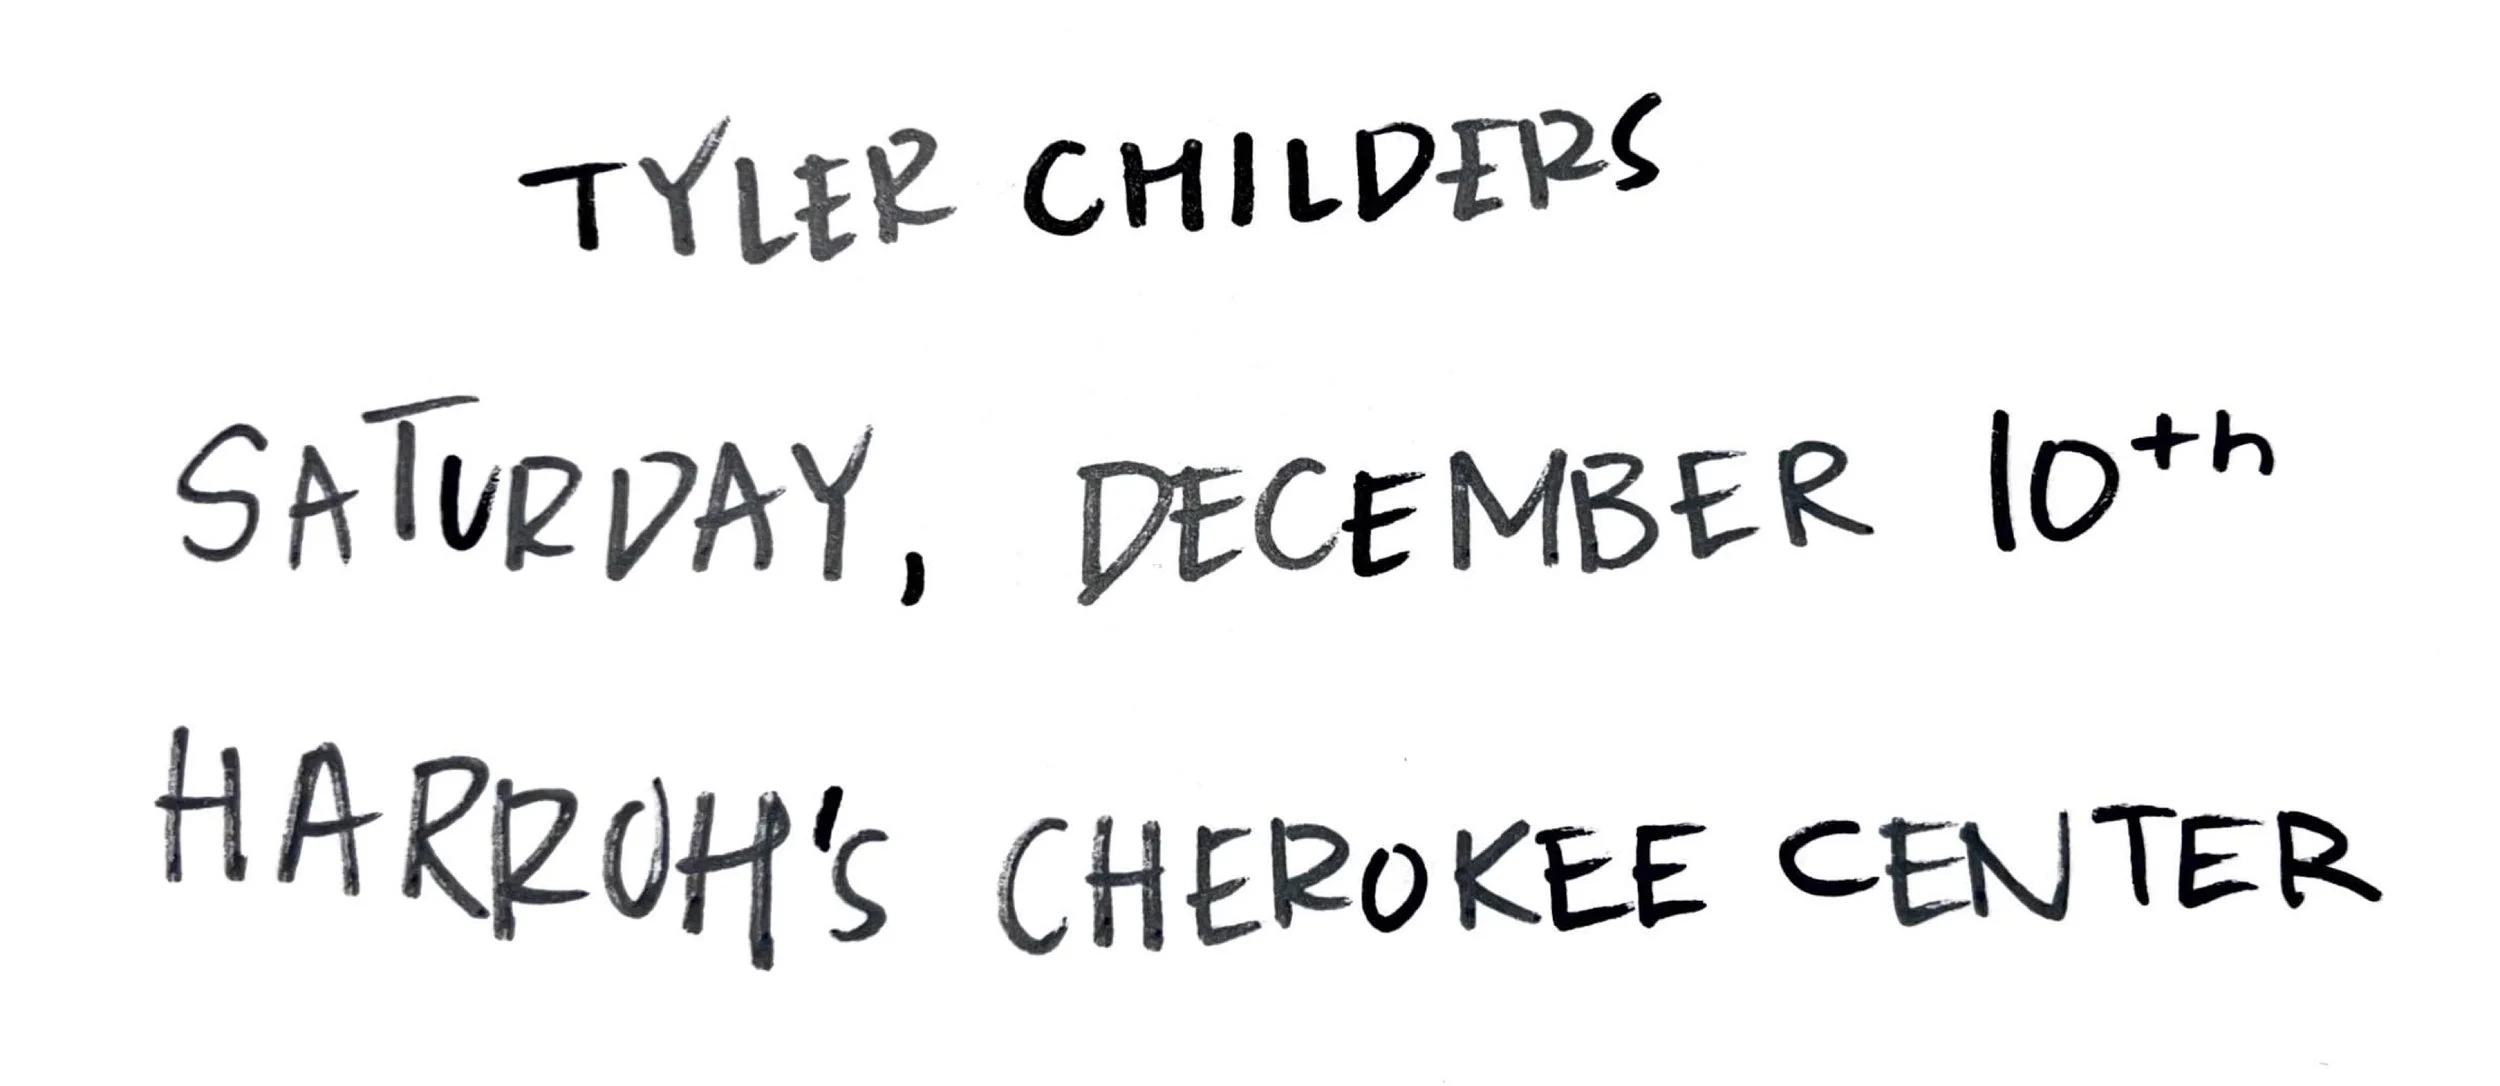 TYLER CHILDERS
SATURDAY, DECEMBER 10th
HARROH'S CHEROKEE CENTER